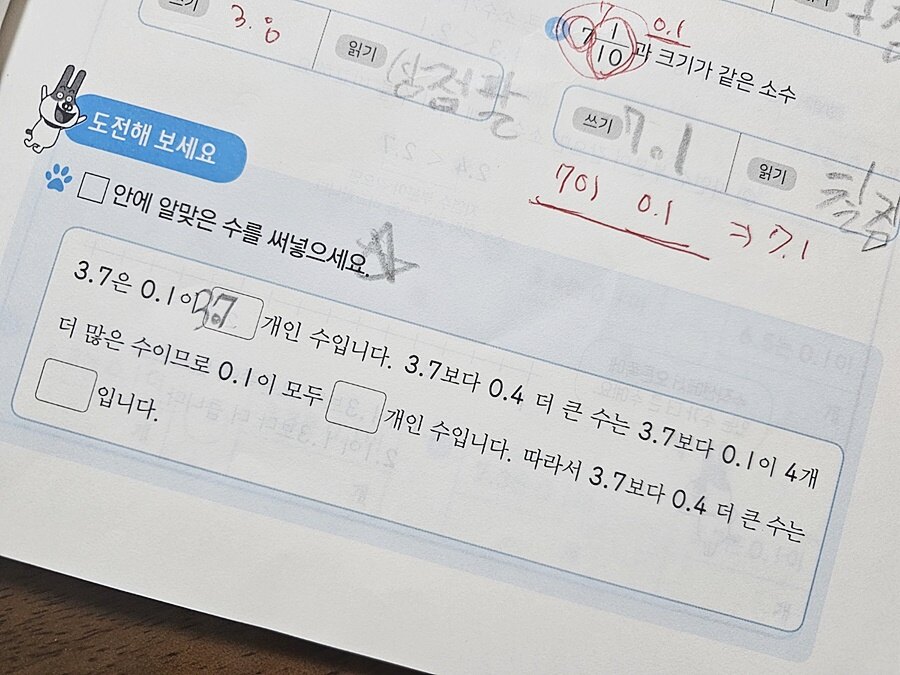 쓰기
3.8
읽기
삼점팔
7 1/10과 크기가 같은 소수
0.1
쓰기
7.1
읽기
칠점
701 0.1 ⇒ 7.1
도전해 보세요
□ 안에 알맞은 수를 써넣으세요.
3.7은 0.1이 37 개인 수입니다. 3.7보다 0.4 더 큰 수는 3.7보다 0.1이 4개
더 많은 수이므로 0.1이 모두 □ 개인 수입니다. 따라서 3.7보다 0.4 더 큰 수는
□ 입니다.